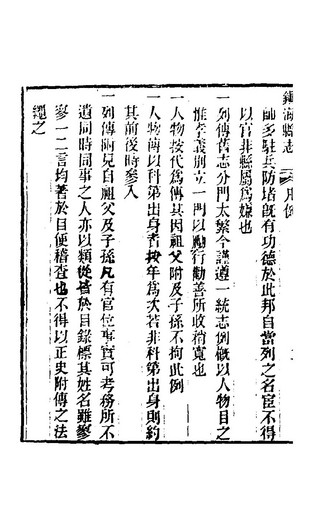 鎮海縣志 凡例
帥多駐兵防堵既有功德於此邦自當列之名宦不得
以官非縣屬爲嫌也
一列傳舊志分門太繁今謹遵一統志例槪以人物目之
惟孝義別立一門以勵行勸善所收稍寬也
一人物按代爲傳其因祖父附及子孫不拘此例
一人物傳以科第出身者按年爲次若非科第出身則約
其前後時參入
一列傳附見自祖父及子孫凡有官位事實可考務所不
遺同時同事之人亦以類從皆於目錄標其姓名雖寥
寥一二言均著於目便稽查也不得以正史附傳之法
繩之